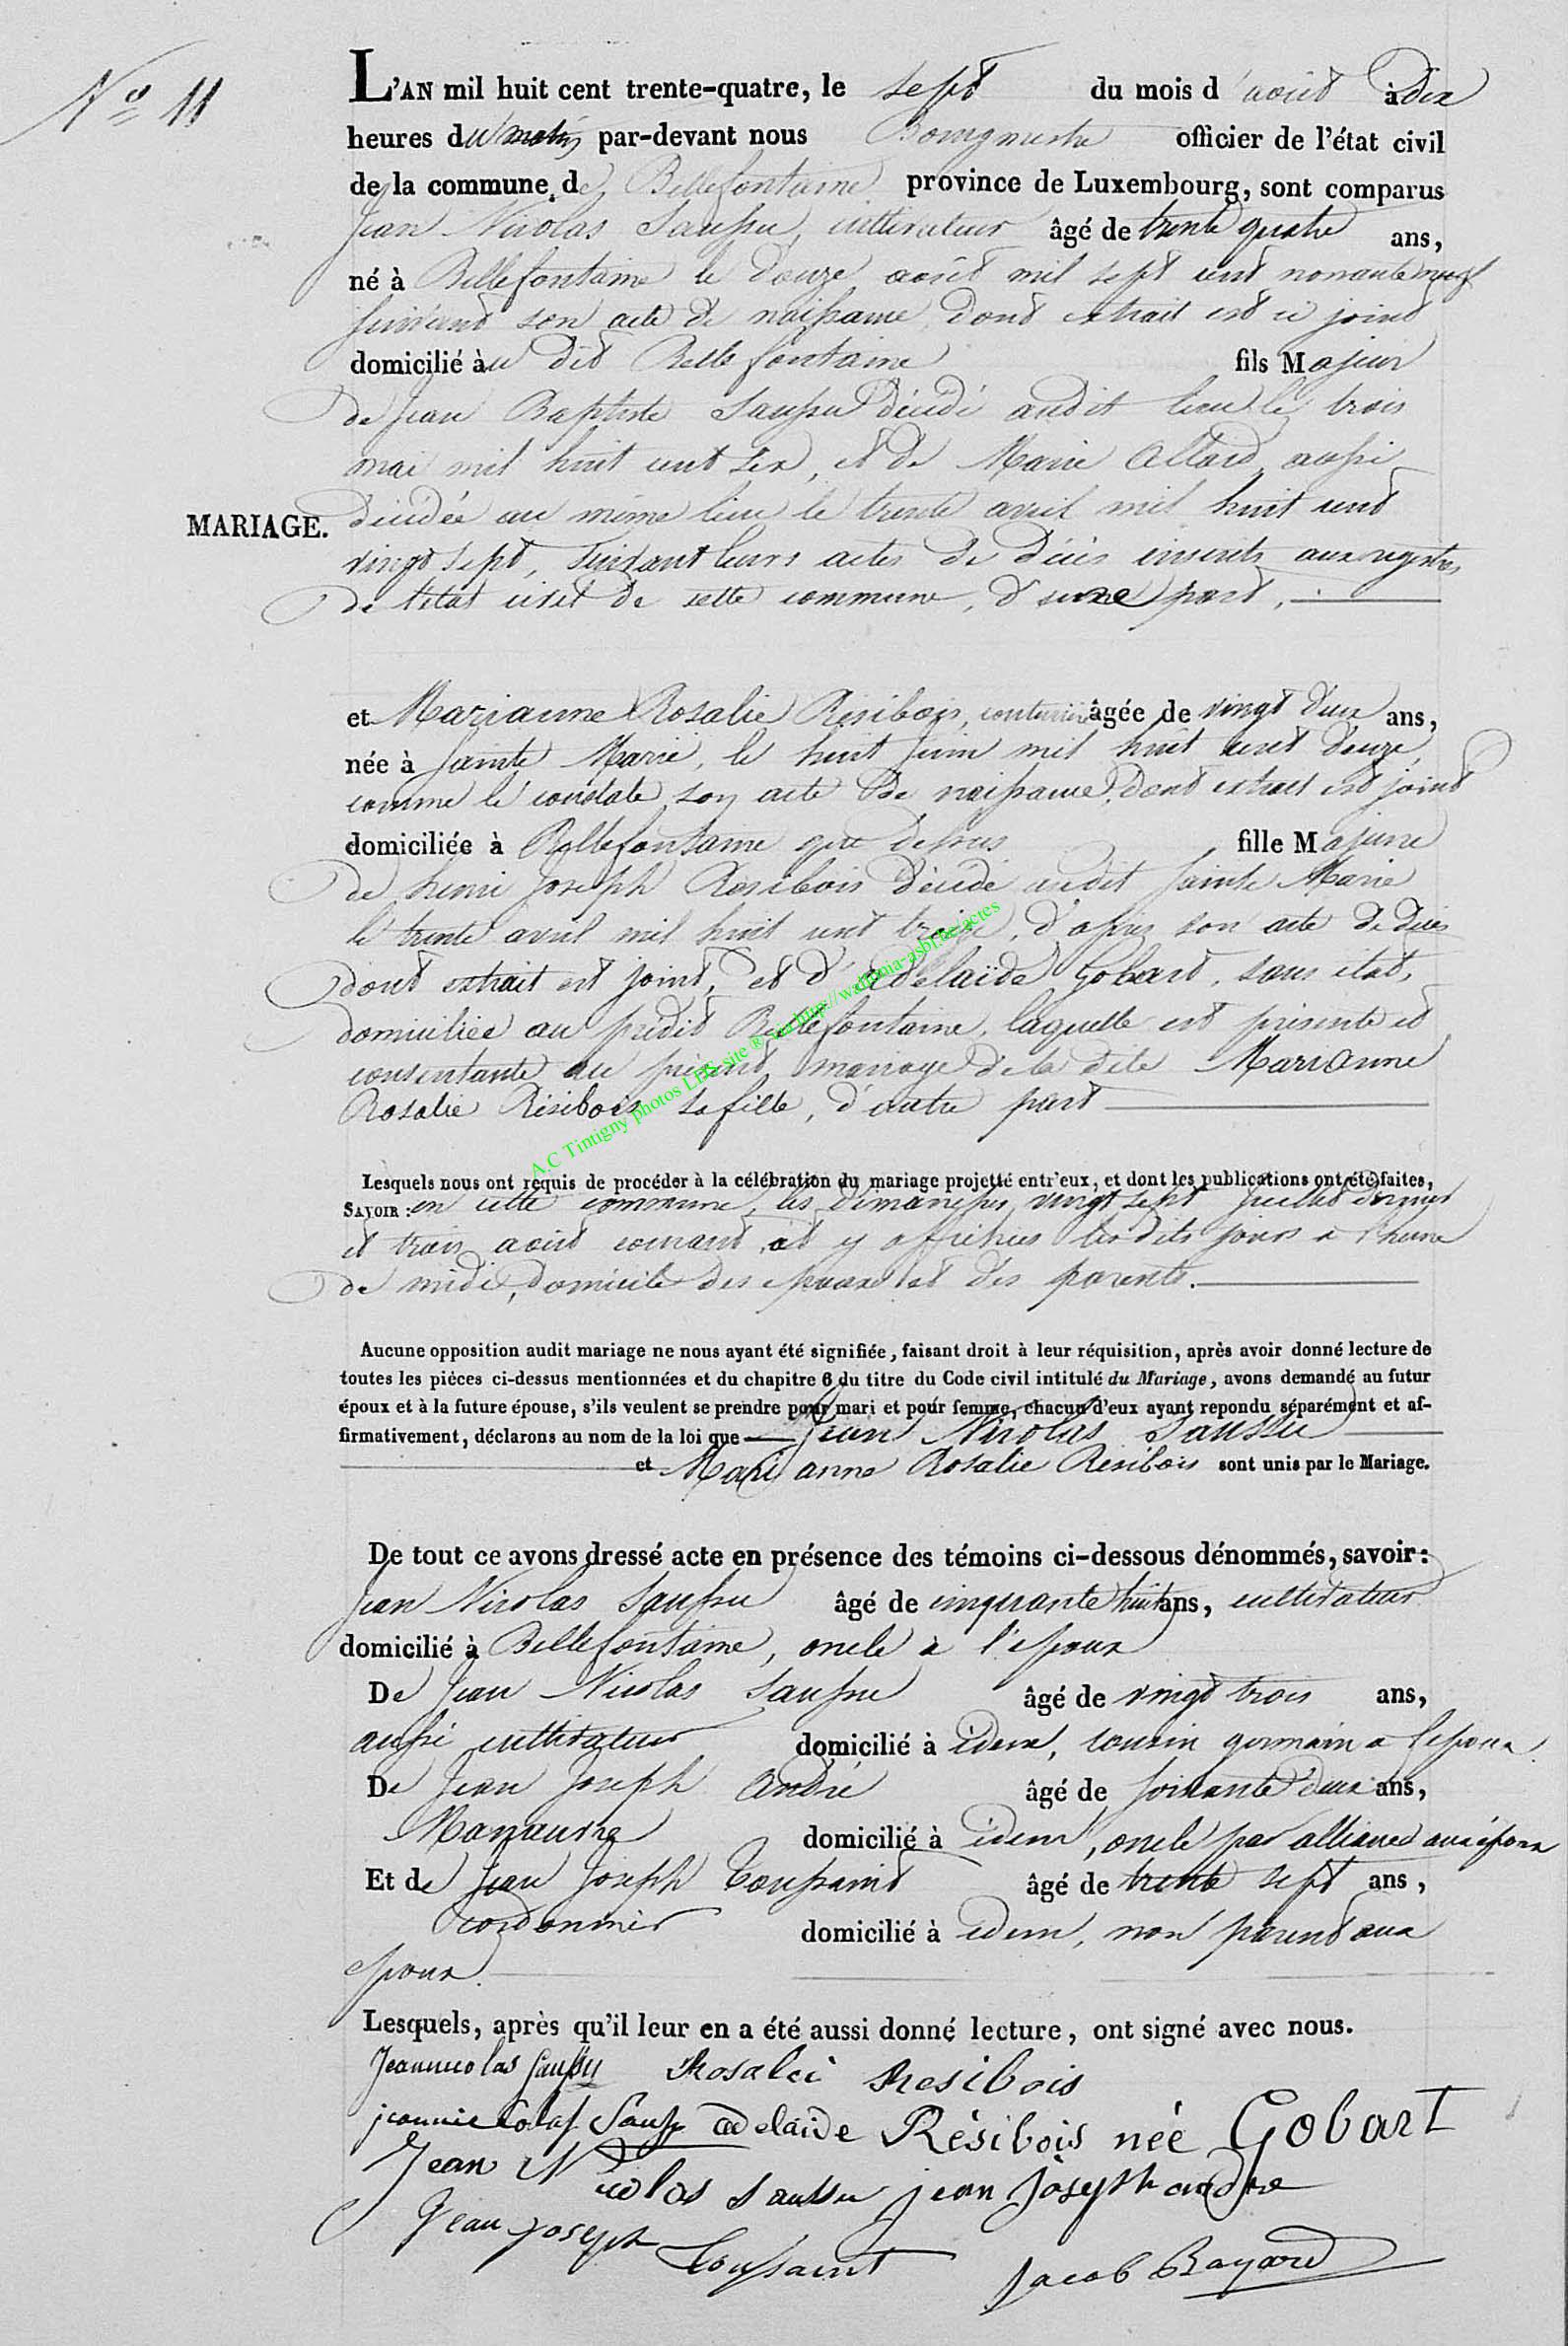 N° 11
L'AN mil huit cent trente-quatre, le sept du mois d'août à dix
heures du matin par-devant nous Bourgmestre officier de l'état civil
de la commune de Bellefontaine province de Luxembourg, sont comparus
Jean Nicolas Saussu, cultivateur âgé de trente quatre ans,
né à Bellefontaine le douze août mil sept cent nonante neuf
suivant son acte de naissance dont extrait est ci joint
domicilié au dit Bellefontaine fils Majeur
de Jean Baptiste Saussu décédé audit lieu le trois
mai mil huit cent six, et de Marie Allard aussi
décédée au même lieu le trente avril mil huit cent
MARIAGE.
vingt sept, suivant leurs actes de décès inscrits aux registres
de l'état civil de cette commune, d'une part,
et Marianne Rosalie Résibois, couturière âgée de vingt deux ans,
née à Sainte Marie, le huit juin mil huit cent douze,
comme le constate son acte de naissance, dont extrait est joint
domiciliée à Bellefontaine que dessus fille Majeure
de henri Joseph Résibois décédé audit Sainte Marie
le trente avril mil huit cent treize, d'après son acte de décès
dont extrait est joint, et d'Adelaïde Gobart, sans état,
domiciliée au prédit Bellefontaine, laquelle est présente et
consentante au présent mariage de la dite Marianne
Rosalie Résibois sa fille, d'autre part
A.C Tintigny photos LDS site ® via http://wallonia-asbl.be/actes
Lesquels nous ont requis de procéder à la célébration du mariage projetté entr'eux, et dont les publications ont été faites,
SAVOIR : en cette commune, les dimanches vingt sept juillet dernier
et trois août courant, et y affichées les dits jours à l'heure
de midi, domicile des epoux et des parents.
Aucune opposition audit mariage ne nous ayant été signifiée, faisant droit à leur réquisition, après avoir donné lecture de
toutes les pièces ci-dessus mentionnées et du chapitre 6 du titre du Code civil intitulé du Mariage, avons demandé au futur
époux et à la future épouse, s'ils veulent se prendre pour mari et pour femme, chacun d'eux ayant repondu séparément et af-
firmativement, déclarons au nom de la loi que Jean Nicolas Saussu
et Marianne Rosalie Résibois sont unis par le Mariage.
De tout ce avons dressé acte en présence des témoins ci-dessous dénommés, savoir:
Jean Nicolas Saussu âgé de cinquante huit ans, cultivateur
domicilié à Bellefontaine, oncle à l'epoux
De Jean Nicolas Saussu âgé de vingt trois ans,
aussi cultivateur domicilié à idem, cousin germain a l'epoux
De Jean Joseph André âgé de soixante deux ans,
Manœuvre domicilié à idem, oncle par alliance aux époux
Et de Jean Joseph Toussaint âgé de trente sept ans,
cordonnier domicilié à idem, non parent aux
epoux.
Lesquels, après qu'il leur en a été aussi donné lecture, ont signé avec nous.
Jeannicolas Saussu Rosalie Resibois
jeannicolas Sauss adelaide Résibois née Gobart
Jean Nicolas Saussu jean joseph andre
Jean joseph Toussaint Jacob Bayard